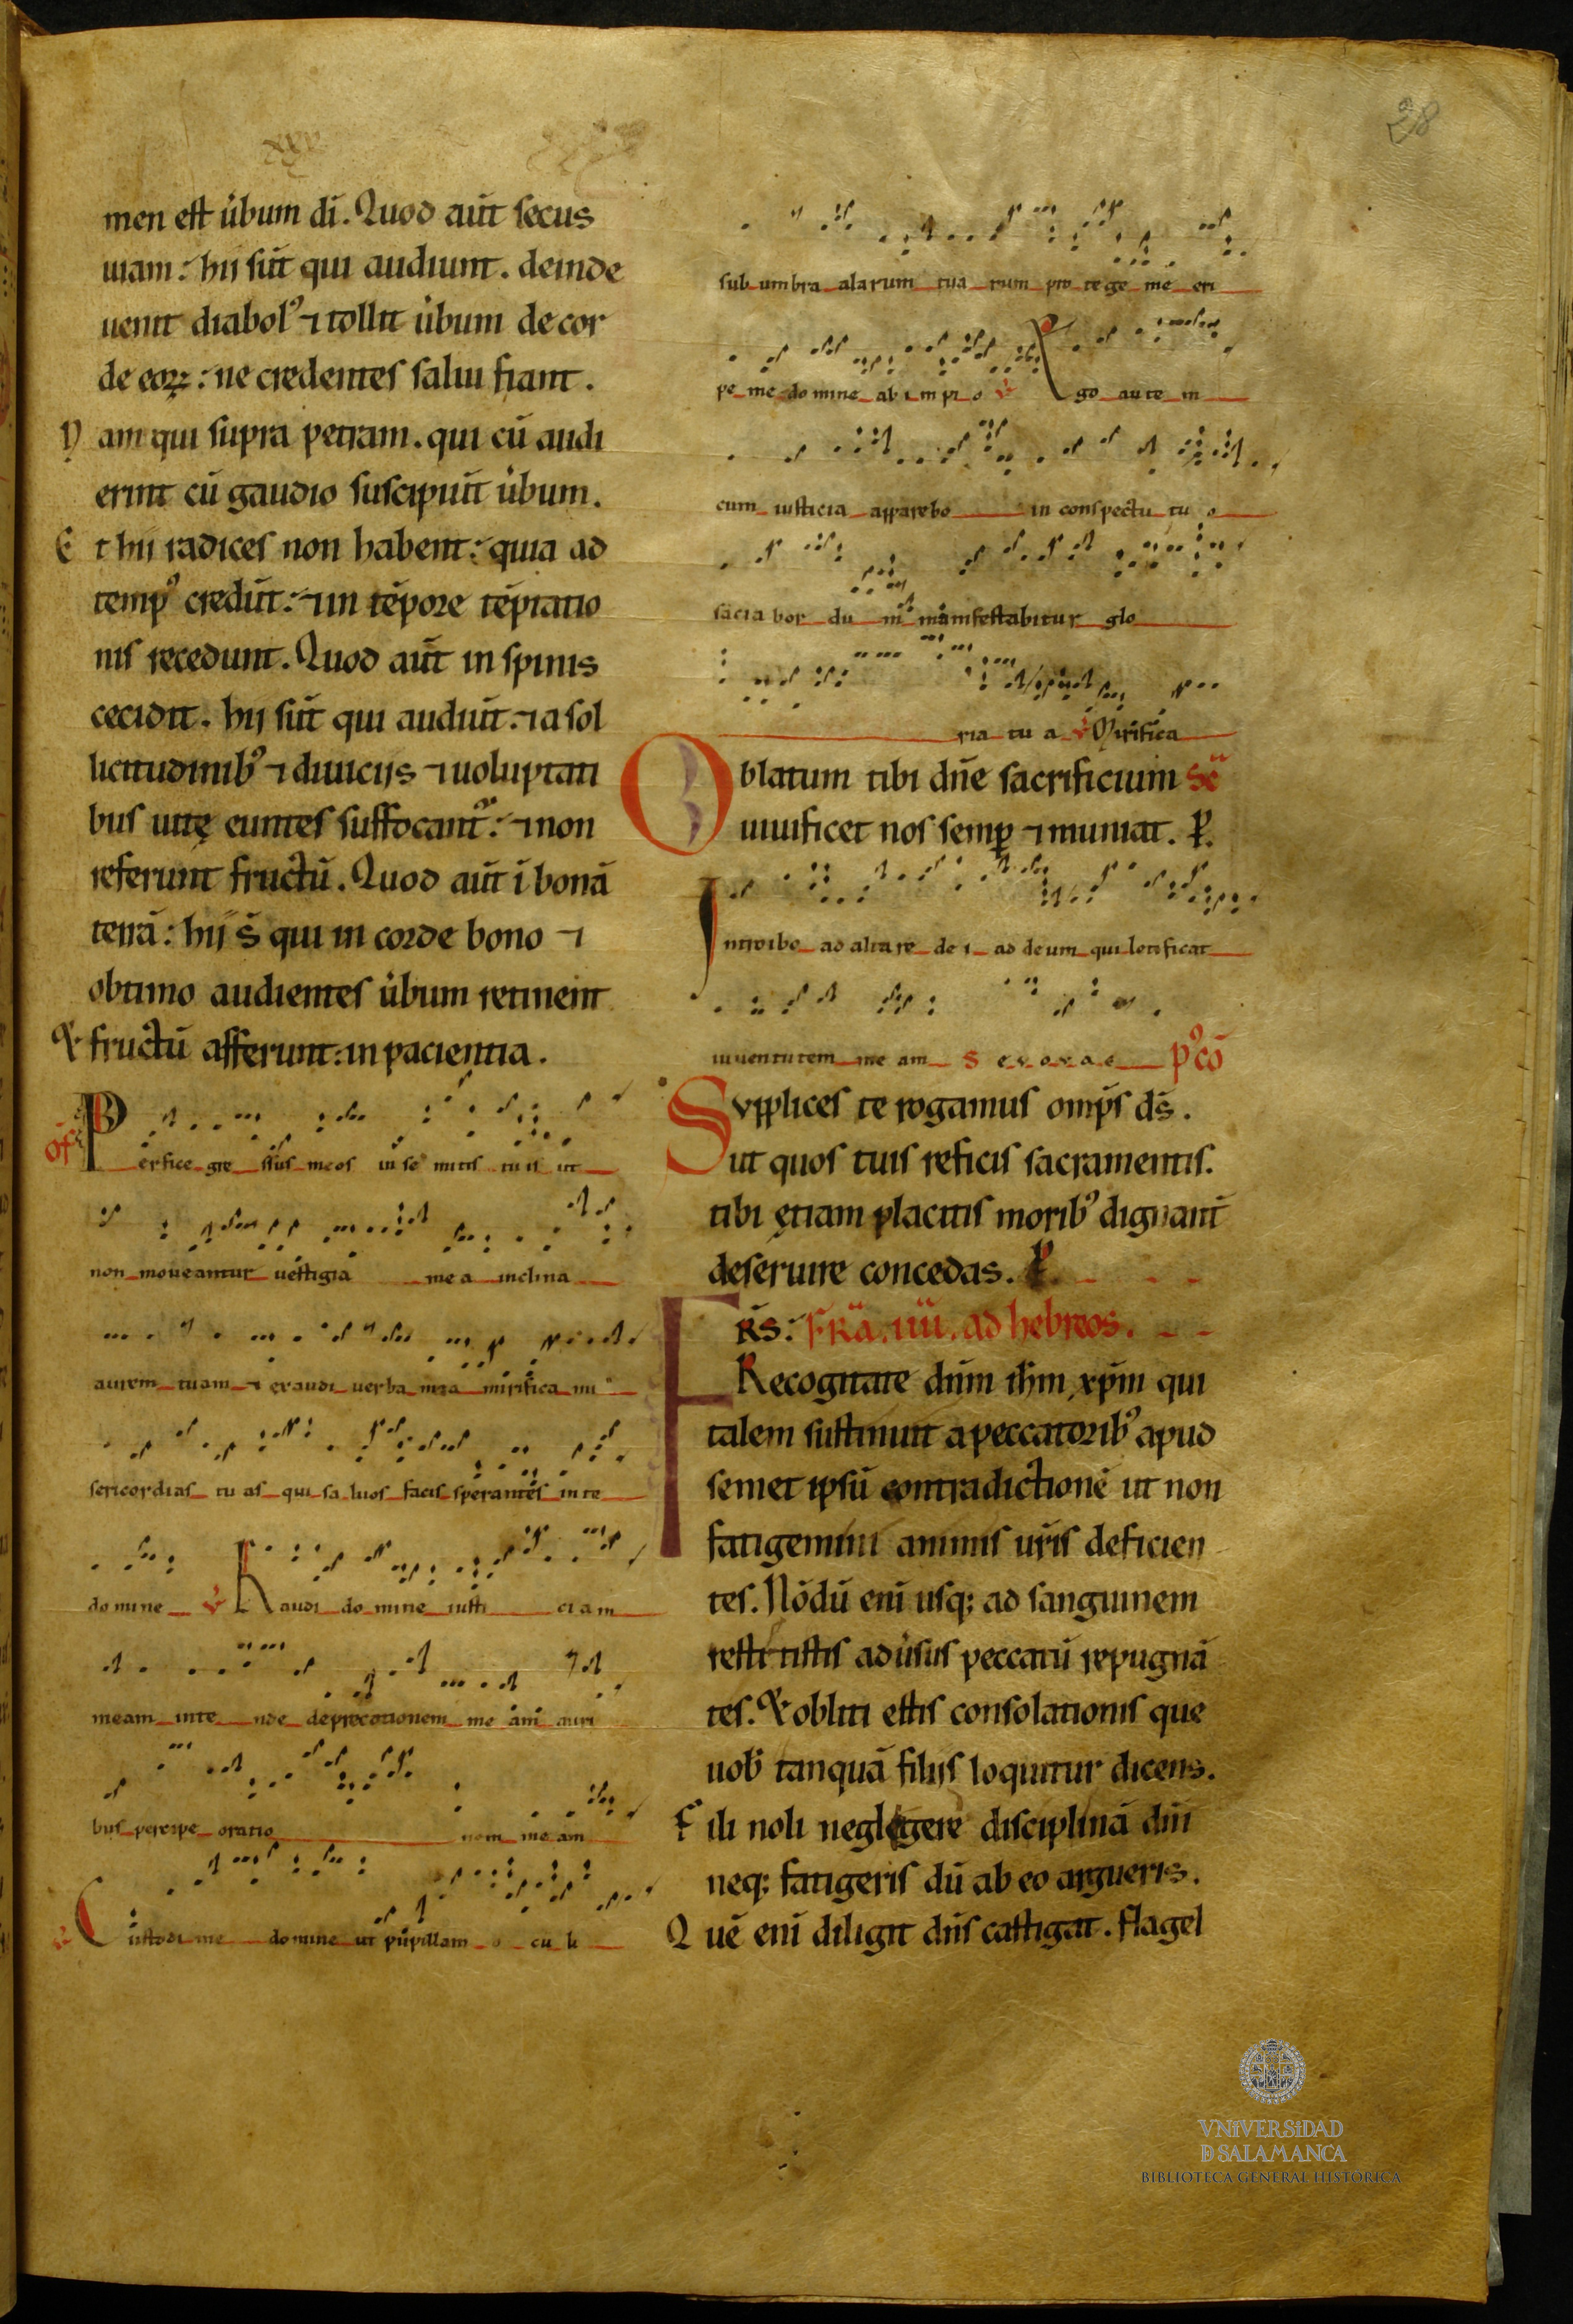 28
xxv
men est ūbum dī. Quod aūt secus
uiam: hii sūt qui audiunt. deinde
uenit diabol᾽ ⁊ tollit ūbum de cor
de eoꝝ: ne credentes salui fiant.
N am qui supra petram. qui cū audi
erint cū gaudio suscipiūt ūbum.
E t hii radices non habent: quia ad
temp᾽ credūt: ⁊ in tēpore tēptatio
nis recedunt. Quod aūt in spinis
cecidit. hii sūt qui audiūt. ⁊ a sol
licitudinib᾽ ⁊ diuiciis ⁊ uoluptati
bus uitę euntes suffocant᾽: ⁊ non
referunt fructū. Quod aūt ī bonā
terrā: hii s̄ qui in corde bono ⁊
obtimo audientes ūbum retinent
& fructū afferunt: in pacientia.
Of̄ Perfice gressus meos in semitis tuis ut
non moueantur uestigia mea inclina
aurem tuam ⁊ exaudi uerba mea mirifica mi
sericordias tuas qui saluos facis sperantes in te
domine ℣ Exaudi domine iusticiam
meam intende deprecationem meam auri
bus percipe orationem meam
℣ Custodi me domine ut pupillam oculi
sub umbra alarum tuarum protege me eri
pe me domine ab impio ℣ Ego autem
cum iusticia apparebo in conspectu tuo
saciabor dum manifestabitur glo
ria tua ℣ Mirifica
Oblatum tibi dn̄e sacrificium Sē
uiuificet nos semꝑ ⁊ muniat. P̄.
Introibo ad altare dei ad deum qui letificat
iuuentutem meam S e.v.o.v.a.e p᾽cō
Supplices te rogamus omp̄s ds̄.
ut quos tuis reficis sacramentis.
tibi ętiam placitis morib᾽ dignant̄
deseruire concedas. P̄.
FRS̄: FRā. iiii. ad hebreos.
Recogitate dn̄m ih̄m xp̄m qui
talem sustinuit a peccatorib᾽ apud
semet ipsū contradictionē ut non
fatigemini animis ur̄is deficien
tes. Nōdū eni usq; ad sanguinem
restitistis adūsus peccatū repugnā
tes. & obliti estis consolationis que
uob̄ tanquā filiis loquitur dicens.
F ili noli neglegere disciplinā dn̄i
neq; fatigeris dū ab eo argueris.
Q uē enī diligit dn̄s castigat. flagel
VNiVERSiDAD
D SALAMANCA
BIBLIOTECA GENERAL HISTÓRICA